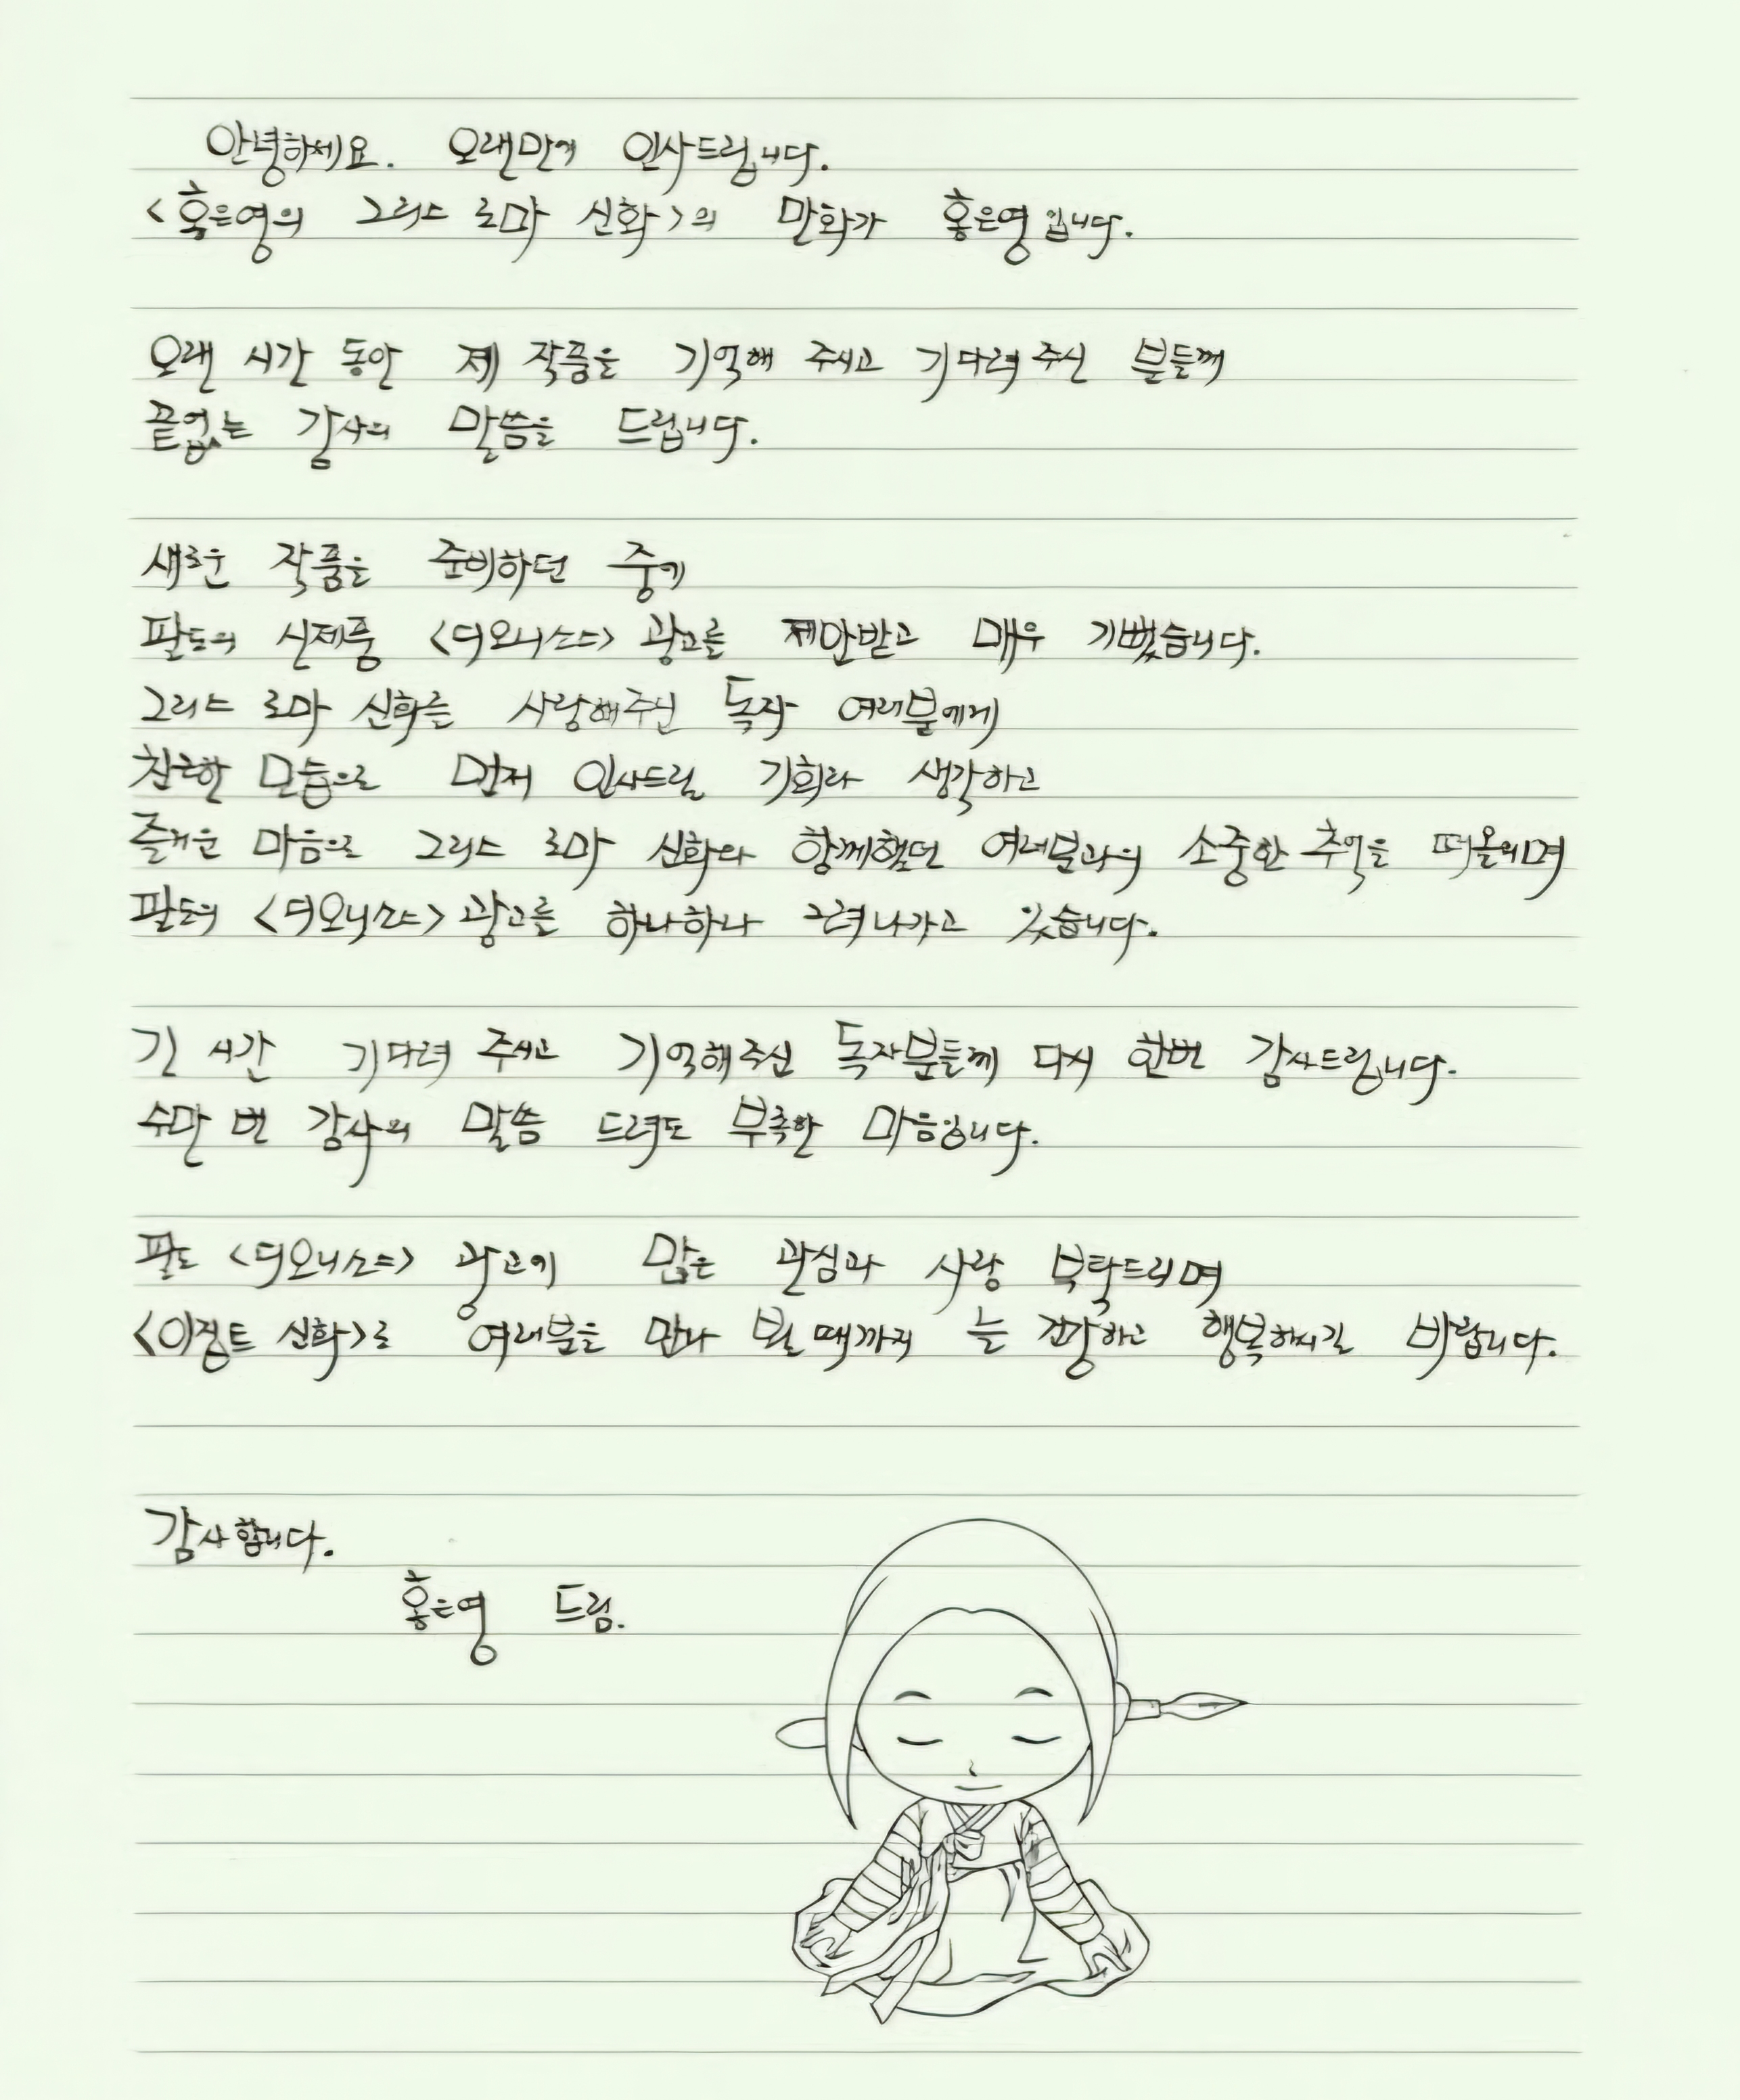 안녕하세요. 오래만에 인사드립니다.
<홍은영의 그리스 로마 신화>의 만화가 홍은영입니다.
오랜 시간 동안 제 작품을 기억해 주시고 기다려 주신 분들께
끝없는 감사의 말씀을 드립니다.
새로운 작품을 준비하던 중에
팔도의 신제품 <디오니소스> 광고를 제안받고 매우 기뻤습니다.
그리스 로마 신화를 사랑해주신 독자 여러분에게
친근한 모습으로 먼저 인사드릴 기회라 생각하고
즐거운 마음으로 그리스 로마 신화와 함께했던 여러분과의 소중한 추억을 떠올리며
팔도의 <디오니소스> 광고를 하나하나 그려나가고 있습니다.
긴 시간 기다려 주시고 기억해주신 독자분들께 다시 한번 감사드립니다.
수만 번 감사의 말씀 드려도 부족한 마음입니다.
팔도 <디오니소스> 광고에 많은 관심과 사랑 부탁드리며
<이집트 신화>로 여러분을 만나 뵐 때까지 늘 건강하고 행복하시길 바랍니다.
감사합니다.
홍은영 드림.